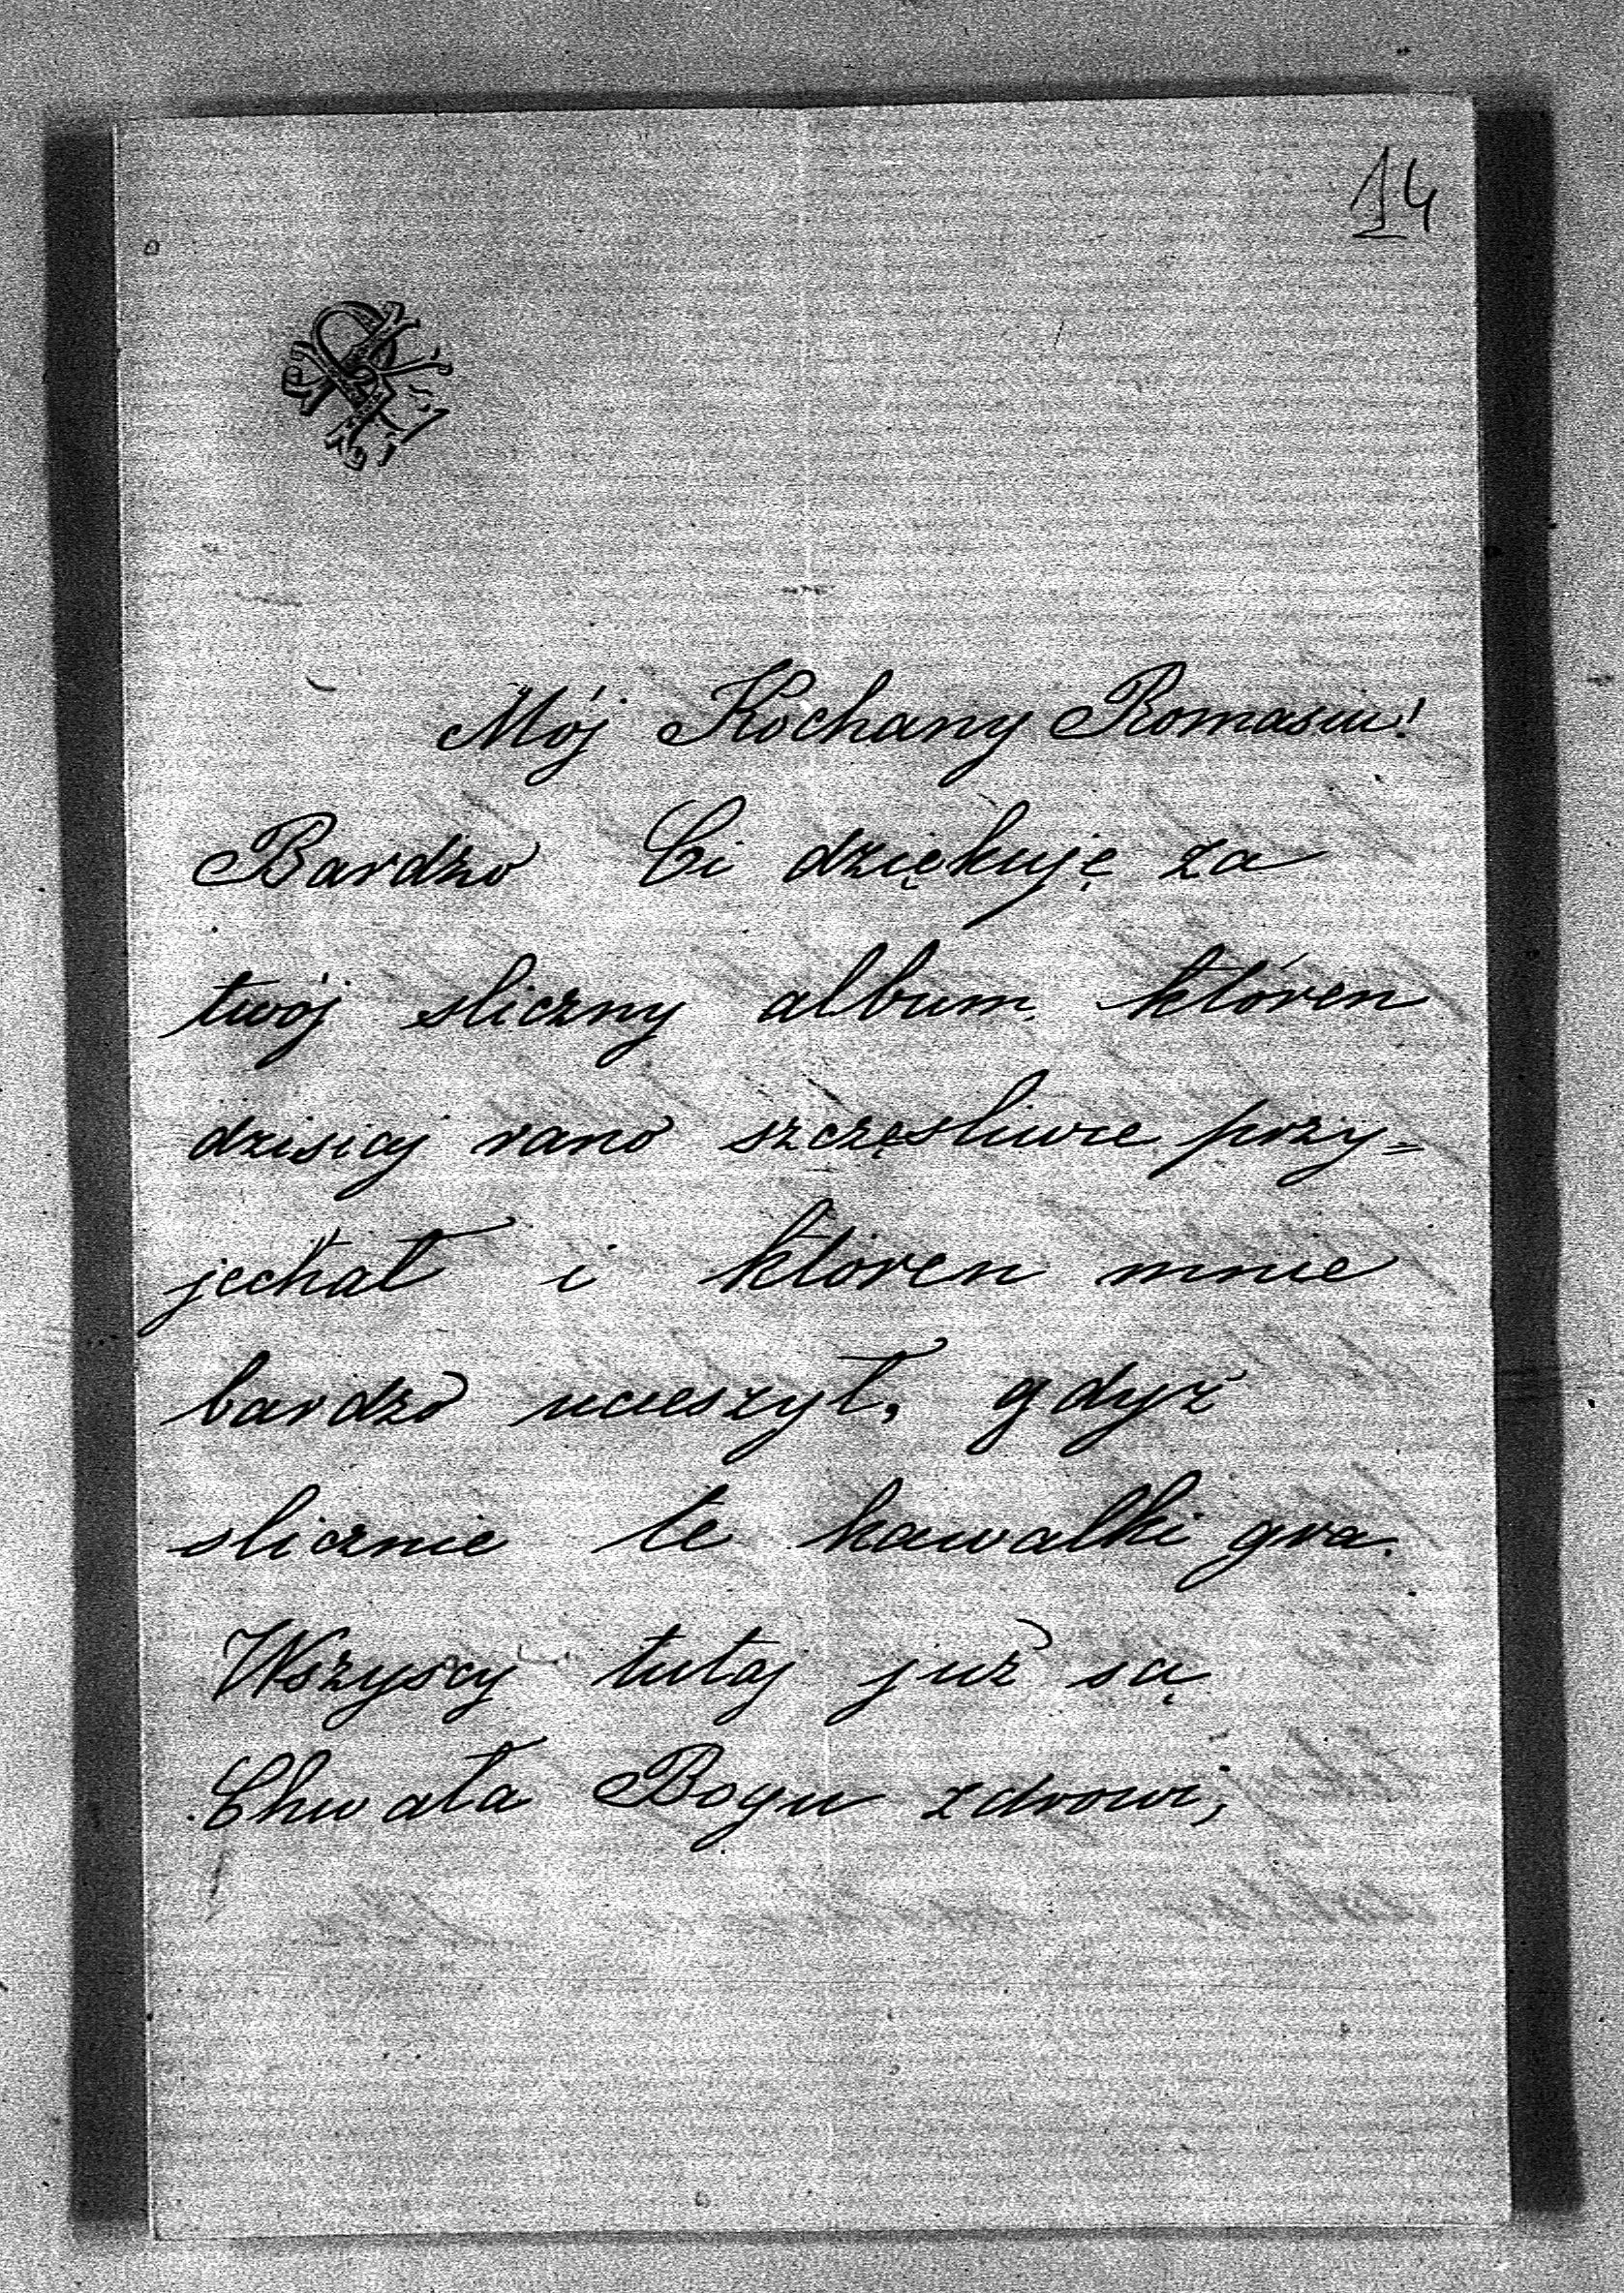 14
Mój Kochany Romasiu!
Bardzo Ci dziękuję za
twój sliczny album, któren
dzisiaj rano szczęsliwie przy=
jechał i któren mnie
bardzo ucieszył, gdyż
slicznie te kawalki gra.
Wszyscy tutaj już są
Chwała Bogu zdrowi,